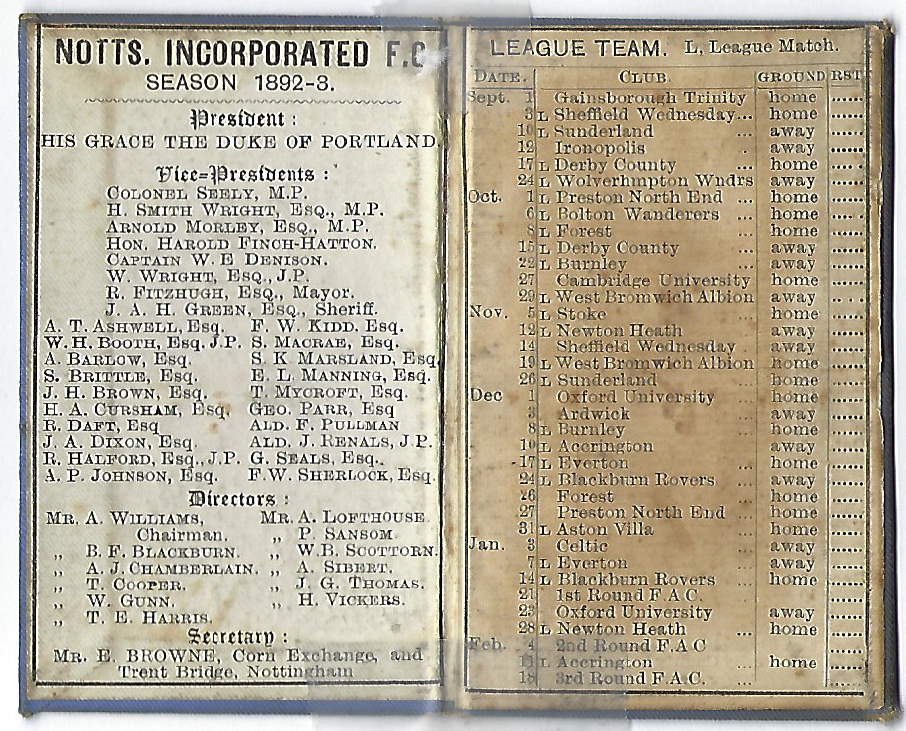 NOTTS. INCORPORATED F.C
SEASON 1892-3.
President :
HIS GRACE THE DUKE OF PORTLAND.
Vice=Presidents :
COLONEL SEELY, M.P.
H. SMITH WRIGHT, ESQ., M.P.
ARNOLD MORLEY, ESQ., M.P.
HON. HAROLD FINCH-HATTON.
CAPTAIN W. E DENISON.
W. WRIGHT, ESQ., J.P.
R. FITZHUGH, ESQ., Mayor.
J. A. H. GREEN, ESQ., Sheriff.
A. T. ASHWELL, ESQ. F. W. KIDD, ESQ.
W. H. BOOTH, ESQ. J.P. S. MACRAE, ESQ.
A. BARLOW, ESQ. S. K MARSLAND, ESQ.
S. BRITTLE, ESQ. E. L. MANNING, ESQ.
J. H. BROWN, ESQ. T. MYCROFT, ESQ.
H. A. CURSHAM, ESQ. GEO. PARR, ESQ
R. DAFT, ESQ ALD. F. PULLMAN
J. A. DIXON, ESQ. ALD. J. RENALS, J.P.
R. HALFORD, ESQ., J.P. G. SEALS, ESQ.
A. P. JOHNSON, ESQ. F. W. SHERLOCK, ESQ.
Directors :
MR. A. WILLIAMS, MR. A. LOFTHOUSE.
Chairman. „ P. SANSOM.
„ B. F. BLACKBURN. „ W. B. SCOTTORN.
„ A. J. CHAMBERLAIN. „ A. SIBERT.
„ T. COOPER. „ J. G. THOMAS.
„ W. GUNN. „ H. VICKERS.
„ T. E. HARRIS.
Secretary :
MR. E. BROWNE, Corn Exchange, and
Trent Bridge, Nottingham
LEAGUE TEAM. L, League Match.
DATE. CLUB. GROUND RST
Sept. 1 Gainsborough Trinity home ......
3 L Sheffield Wednesday... home ......
10 L Sunderland ... away ......
12 Ironopolis . away ......
17 L Derby County ... home ......
24 L Wolverhmpton Wndrs away ......
Oct. 1 L Preston North End ... home ......
6 L Bolton Wanderers ... home ......
8 L Forest ... home ......
15 L Derby County ... away ......
22 L Burnley ... away ......
27 Cambridge University home ......
29 L West Bromwich Albion away ......
Nov. 5 L Stoke ... home ......
12 L Newton Heath ... away ......
14 Sheffield Wednesday . away ......
19 L West Bromwich Albion home ......
26 L Sunderland ... home ......
Dec 1 Oxford University home ......
3 Ardwick ... away ......
8 L Burnley ... home ......
10 L Accrington away ......
17 L Everton ... home ......
24 L Blackburn Rovers ... away ......
26 Forest ... home ......
27 Preston North End ... home ......
31 L Aston Villa ... home ......
Jan. 3 Celtic ... away ......
7 L Everton ... away ......
14 L Blackburn Rovers ... home ......
21 1st Round F.A.C. ......
23 Oxford University away ......
28 L Newton Heath ... home ......
Feb. 4 2nd Round F.A.C ......
11 L Accrington home ......
18 3rd Round F.A.C. ... ......